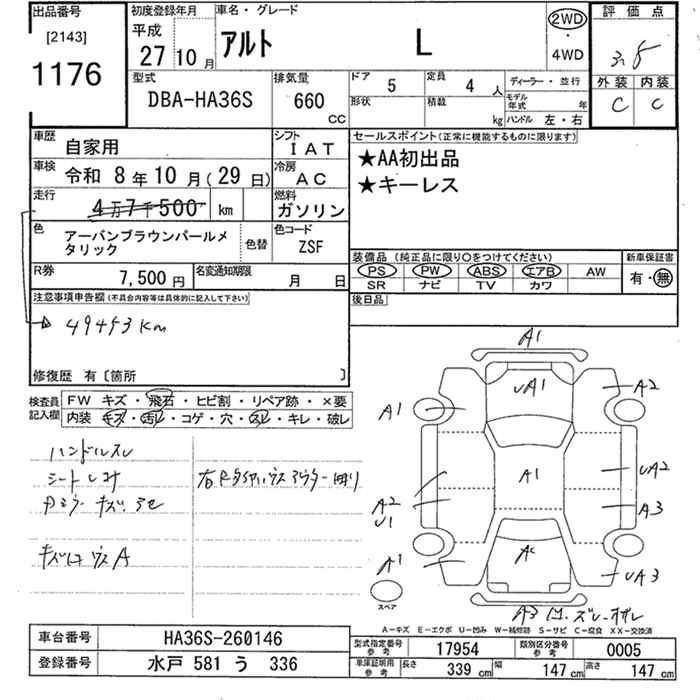 出品番号
[2143]
1176
初度登録年月
平成
27 10 月
車名・グレード
アルト L
2WD
・
4WD
評価点
3.5
外装 内装
C C
型式
DBA-HA36S
排気量
660
CC
ドア 5
定員 4 人
形状
積載 kg
ディーラー・並行
モデル年式 年
ハンドル 左・右
車歴 自家用
シフト IAT
車検 令和 8 年 10 月(29 日)
冷房 AC
走行 4万7千500 km
燃料 ガソリン
色 アーバンブラウンパールメタリック
色替
色コード ZSF
R券 7,500 円
名変通知期限 月 日
セールスポイント(正常に機能するものに限ります)
★AA初出品
★キーレス
装備品 (純正品に限り○をつけてください)
PS PW ABS エアB AW
SR ナビ TV カワ
新車保証書
有・無
後日品
注意事項申告欄(不具合内容等は具体的に記入して下さい)
49453km
修復歴 有〔箇所 〕
検査員記入欄
FW キズ・飛石・ヒビ割・リペア跡・×要
内装 キズ・汚レ・コゲ・穴・スレ・キレ・破レ
ハンドルスレ
シート
キズ
A
A1
A1
UA1
A2
A1
UA2
A3
A2
U1
A1
UA3
A3
スペア
A-キズ E-エクボ U-凹み W-補修跡 S-サビ C-腐食 XX-交換済
車台番号 HA36S-260146
登録番号 水戸 581 う 336
型式指定番号 参考 17954
類別区分番号 参考 0005
車庫証明用 参考 長さ 339 cm 幅 147 cm 高さ 147 cm